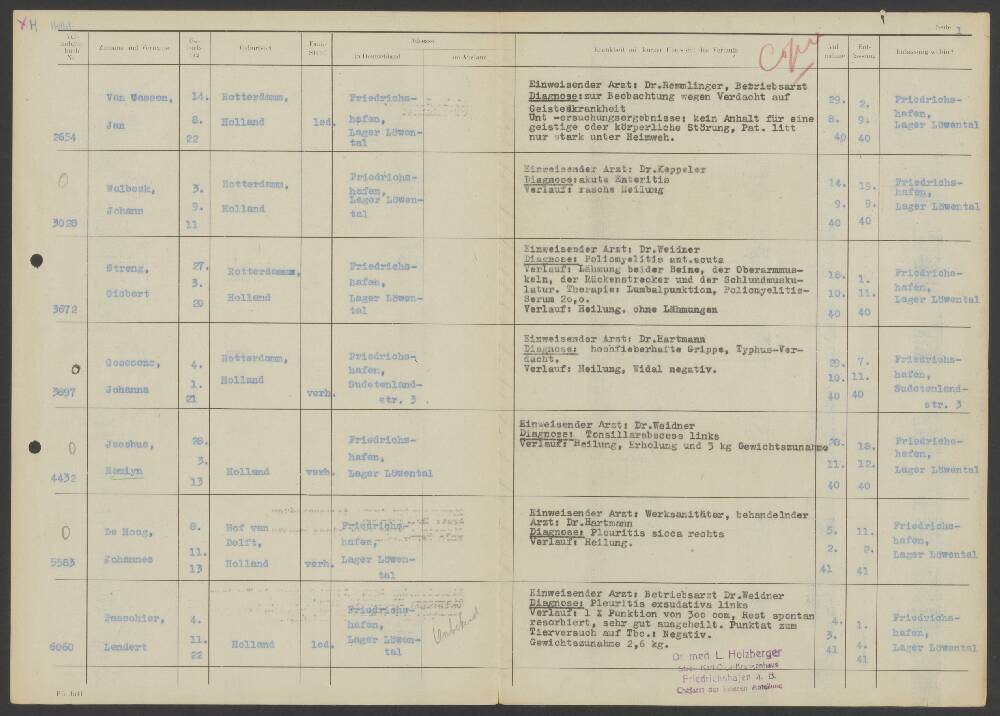 XH
Seite 1
Zuname und Vorname
Geburtsort
in Deutschland
im Ausland
Copie
Van Wessem,
Jan
2654
14.
8.
22
Rotterdamm,
Holland
led.
Friedrichs-
hafen,
Lager Löwen-
tal
Einweisender Arzt: Dr.Remmlinger, Betriebsarzt
Diagnose:zur Beobachtung wegen Verdacht auf
Geisteskrankheit
Unt -ersuchungsergebnisse: kein Anhalt für eine
geistige oder körperliche Störung, Pat. litt
nur stark unter Heimweh.
29.
8.
40
2.
9.
40
Friedrichs-
hafen,
Lager Löwental
0
Walbeek,
Johann
3028
3.
9.
11
Rotterdamm,
Holland
Friedrichs-
hafen,
Lager Löwen-
tal
Einweisender Arzt: Dr.Keppeler
Diagnose:akute Enteritis
Verlauf: rasche Heilung
14.
9.
40
19.
9.
40
Friedrichs-
hafen,
Lager Löwental
Streng,
Gisbert
3672
27.
3.
20
Rotterdamm,
Holland
Friedrichs-
hafen,
Lager Löwen-
tal
Einweisender Arzt: Dr.Weidner
Diagnose: Poliomyelitis ant.acuta
Verlauf: Lähmung beider Beine, der Oberarmmus-
keln, der Rückenstrecker und der Schlundmusku-
latur. Therapie: Lumbalpunktion, Poliomyelitis-
Serum 20,0.
Verlauf: Heilung. ohne Lähmungen
18.
10.
40
1.
11.
40
Friedrichs-
hafen,
Lager Löwental
0
Goossens,
Johanna
3897
4.
1.
21
Rotterdamm,
Holland
verh.
Friedrichs-
hafen,
Sudetenland-
str. 3
Einweisender Arzt: Dr.Hartmann
Diagnose: hochfieberhafte Grippe, Typhus-Ver-
dacht.
Verlauf: Heilung, Widal negativ.
29.
10.
40
7.
11.
40
Friedrichs-
hafen,
Sudetenland-
str. 3
0
Jeechus,
Remiyn
4432
28.
3.
13
Holland
verh.
Friedrichs-
hafen,
Lager Löwental
Einweisender Arzt: Dr.Weidner
Diagnose: Tonsillarabscess links
Verlauf: Heilung, Erholung und 3 kg Gewichtszunahme
28.
11.
40
18.
12.
40
Friedrichs-
hafen,
Lager Löwental
0
De Hoog,
Johannes
5583
8.
11.
13
Hof van
Delft,
Holland
verh.
Friedrichs-
hafen,
Lager Löwen-
tal
Einweisender Arzt: Werksanitäter, behandelnder
Arzt: Dr.Hartmann
Diagnose: Pleuritis sicca rechts
Verlauf: Heilung.
5.
2.
41
11.
2.
41
Friedrichs-
hafen,
Lager Löwental
Passchier,
Lendert
6060
4.
11.
22
Holland
led.
Friedrichs-
hafen,
Lager Löwen-
tal
Unbekannt
Einweisender Arzt: Betriebsarzt Dr.Weidner
Diagnose: Pleuritis exsudativa links
Verlauf: 1 X Punktion von 300 ccm, Rest spontan
resorbiert, sehr gut ausgeheilt. Punktat zum
Tierversuch auf Tbc.: Negativ.
Gewichtszunahme 2,6 kg.
4.
3.
41
1.
4.
41
Friedrichs-
hafen,
Lager Löwental
Dr. med. L. Holzberger
Friedrichshafen a. B.
Chefarzt der inneren Abteilung